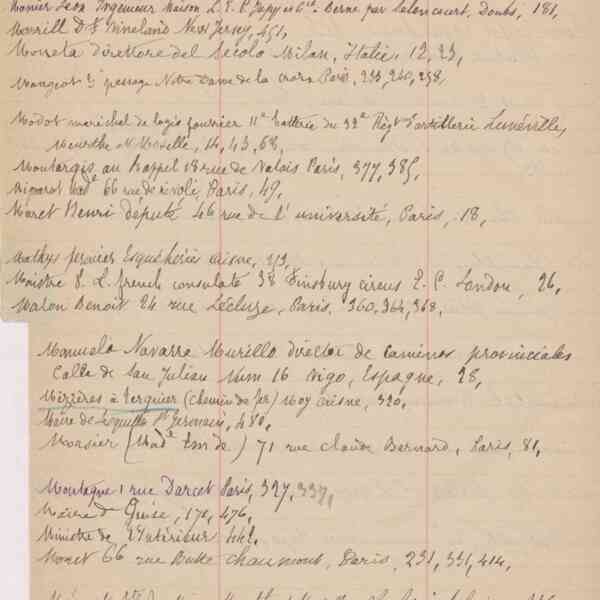 Monier Léon Ingénieur maison L. F. P. Japy et Cie Berne par Seloncourt, Doubs, 181,
Morrill Dr Vineland New Jersey, 451,
Moneta direttore del Secolo Milan, Italie, 12, 23,
Mougeot passage Notre Dame de la Paris, 233, 240, 258,
Modot maréchal de logis fourrier 11e batterie du Régt d'artillerie Lunéville,
Meurthe et Moselle, 14, 43, 68,
Montargis au Rappel 18 rue de Valois Paris, 377, 385,
Made 66 rue de rivoli, Paris, 49,
Maret Henri député 46 rue de l'université, Paris, 18,
Mathys Esquéhéries aisne,
Ministre french consulate 38 Finsbury circus E. C. London, 26,
Malon Benoit 24 rue Lécluze, Paris, 360, 364, 368,
Manuelo Navarro Murillo director de caminos provinciales
Calle de San Julian Num 16 Vigo, Espagne, 28,
Mézières à Tergnier (chemin de fer) Moÿ Aisne, 320,
Maire de St Germain, 480,
Monsier (Made ) 71 rue Claude Bernard, Paris, 81,
Montagne 1 rue Darcet Paris, 327, 337,
Maire de Guise, 170, 476,
Ministre de l'Intérieur 442,
66 rue Butte chaumont, Paris, 231, 331, 414,